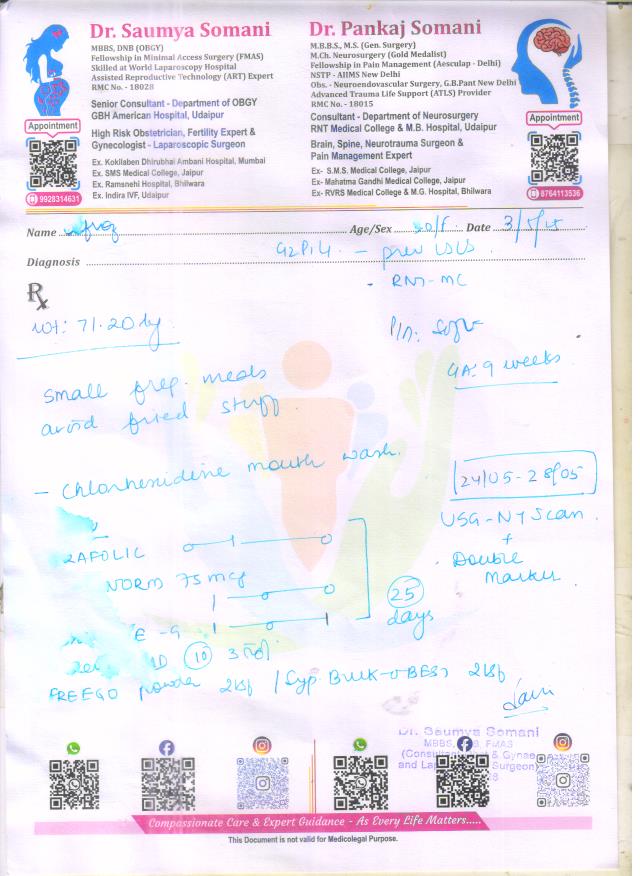 Dr. Saumya Somani
MBBS, DNB (OBGY)
Fellowship in Minimal Access Surgery (FMAS)
Skilled at World Laparoscopy Hospital
Assisted Reproductive Technology (ART) Expert
RMC No. - 18028
Senior Consultant - Department of OBGY
GBH American Hospital, Udaipur
High Risk Obstetrician, Fertility Expert &
Gynecologist - Laparoscopic Surgeon
Ex. Kokilaben Dhirubhai Ambani Hospital, Mumbai
Ex. SMS Medical College, Jaipur
Ex. Ramsnehi Hospital, Bhilwara
Ex. Indira IVF, Udaipur
Appointment
9928314631
Dr. Pankaj Somani
M.B.B.S., M.S. (Gen. Surgery)
M.Ch. Neurosurgery (Gold Medalist)
Fellowship in Pain Management (Aesculap - Delhi)
NSTP - AIIMS New Delhi
Obs. - Neuroendovascular Surgery, G.B.Pant New Delhi
Advanced Trauma Life Support (ATLS) Provider
RMC No. - 18015
Consultant - Department of Neurosurgery
RNT Medical College & M.B. Hospital, Udaipur
Brain, Spine, Neurotrauma Surgeon &
Pain Management Expert
Ex- S.M.S. Medical College, Jaipur
Ex- Mahatma Gandhi Medical College, Jaipur
Ex- RVRS Medical College & M.G. Hospital, Bhilwara
Appointment
8764113536
Name Age/Sex Date 3/5/25
Diagnosis G2P1L1 - prev LSCS
- RNT-MC
Rx
wt: 71.20 kg
P/A: Soft
GA: 9 weeks
small freq. meals
avoid fried stuff
- Chlorhexidine mouth wash.
24/05 - 28/05
USG - NT Scan
+
Double
Marker
AFOLIC
NORM 75 mcg
25
days
E - G
D 10
FREEGO powder / Syp.
Dr. Saumya Somani
MBBS, FMAS
& Gynae
Surgeon)
Compassionate Care & Expert Guidance - As Every Life Matters.....
This Document is not valid for Medicolegal Purpose.